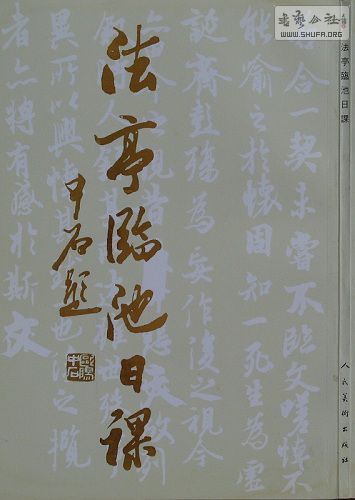 书艺公社
WWW.SHUFA.ORG
法亭臨池日課
中石題
歐陽中石
合一契未嘗不臨文嗟悼不
能喻之於懷固知一死生為虛
誕齊彭殤為妄作後之視今
者亦將有感於斯文
法亭臨池日課
人民美術出版社